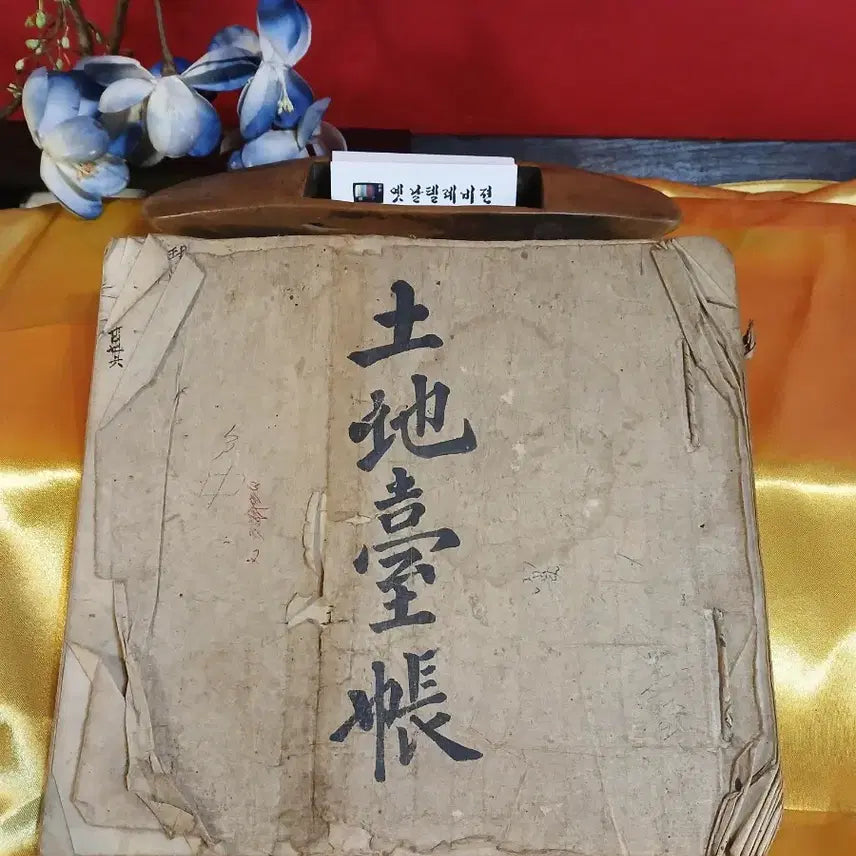 옛날텔레비젼
土地臺帳